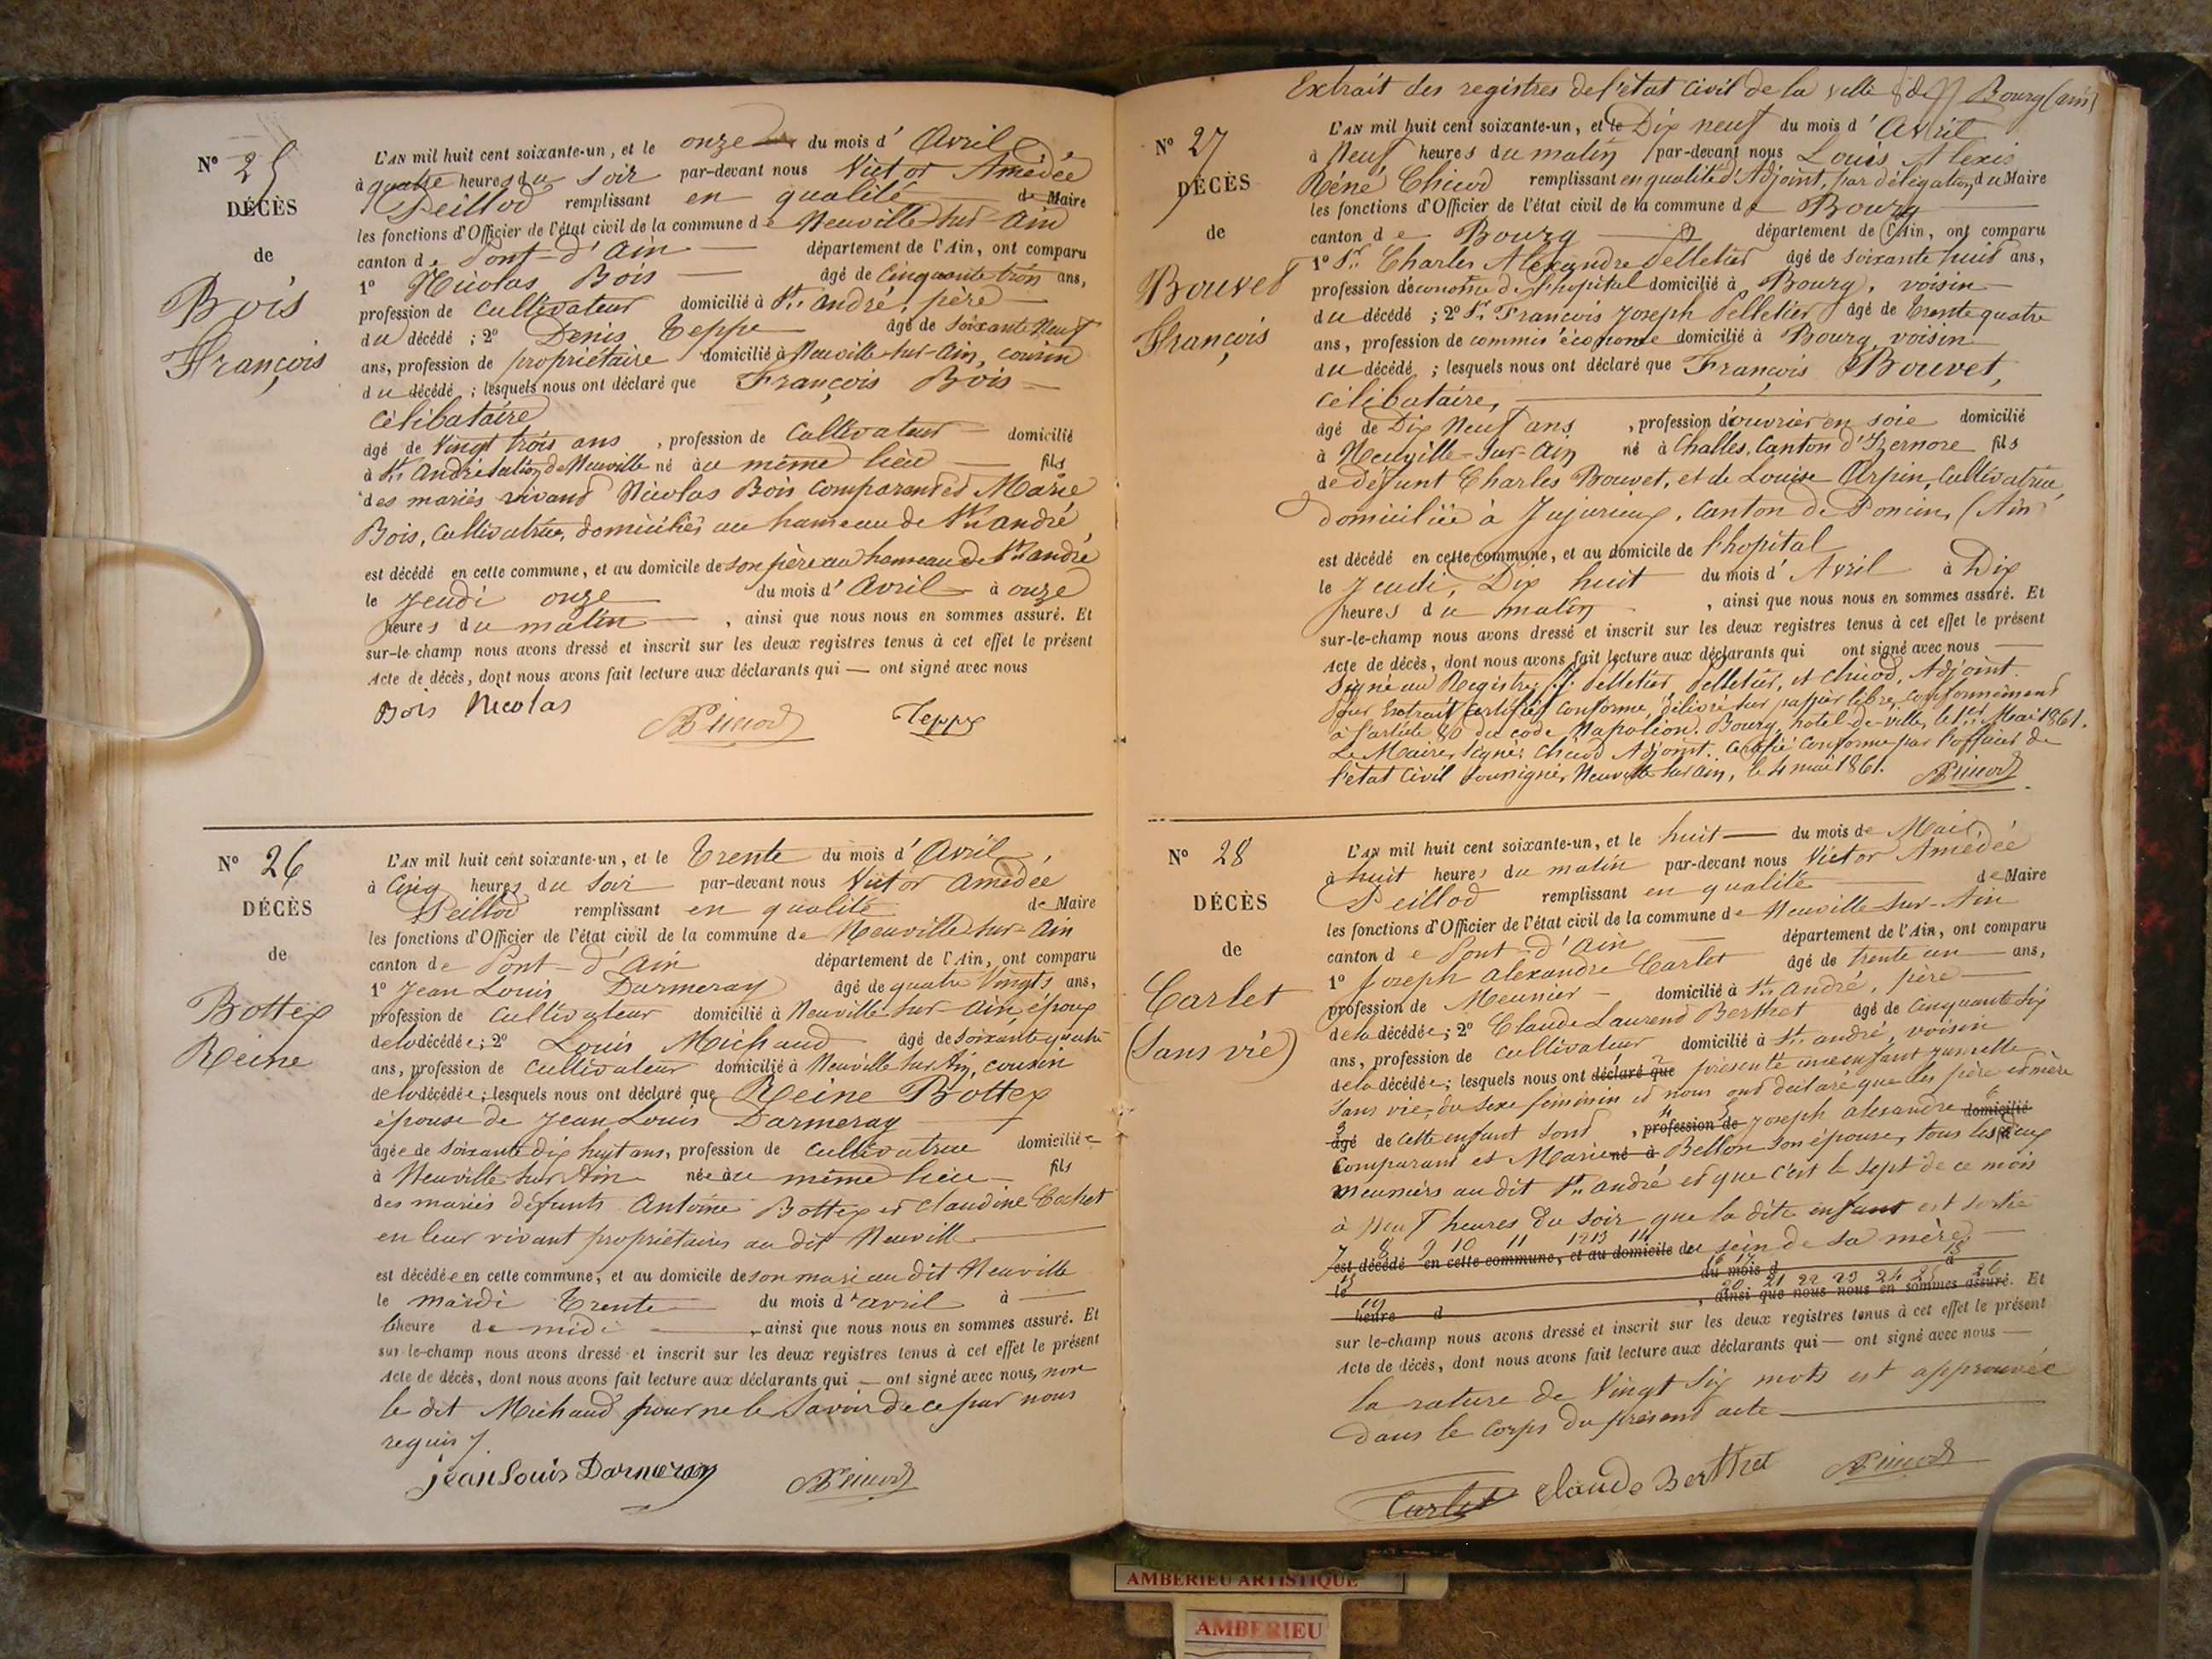 N° 25
DÉCÈS
de
Bois
François
L'AN mil huit cent soixante-un, et le onze du mois d'Avril
à quatre heures du soir par-devant nous Victor Amédée
Peillod remplissant en qualité de Maire
les fonctions d'Officier de l'état civil de la commune de Neuville sur Ain
canton de Pont-d'Ain département de l'Ain, ont comparu
1° Nicolas Bois âgé de cinquante trois ans,
profession de cultivateur domicilié à St. André, père
du décédé ; 2° Denis Teppe âgé de soixante neuf
ans, profession de propriétaire domicilié à Neuville sur-Ain, cousin
du décédé ; lesquels nous ont déclaré que François Bois
célibataire
âgé de vingt trois ans, profession de cultivateur domicilié
à St. André de Neuville né au même lieu fils
des mariés vivans Nicolas Bois comparant et Marie
Bois, cultivatrice, domiciliés au hameau de St. André
est décédé en cette commune, et au domicile de son père au hameau de St. andré
le jeudi onze du mois d'Avril à onze
heures du matin, ainsi que nous nous en sommes assuré. Et
sur-le-champ nous avons dressé et inscrit sur les deux registres tenus à cet effet le présent
Acte de décès, dont nous avons fait lecture aux déclarants qui — ont signé avec nous
Bois Nicolas Teppe
N° 26
DÉCÈS
de
Bottex
Reine
L'AN mil huit cent soixante-un, et le trente du mois d'Avril
à cinq heures du soir par-devant nous Victor Amédée
Peillod remplissant en qualité de Maire
les fonctions d'Officier de l'état civil de la commune de Neuville sur-Ain
canton de Pont-d'Ain département de l'Ain, ont comparu
1° Jean Louis Darmeray âgé de quatre vingts ans,
profession de cultivateur domicilié à Neuville-sur-Ain, époux
de la décédée ; 2° Louis Michaud âgé de soixante quatre
ans, profession de cultivateur domicilié à Neuville sur Ain, cousin
de la décédée ; lesquels nous ont déclaré que Reine Bottex
épouse de Jean Louis Darmeray
âgée de soixante dix huit ans, profession de cultivatrice domiciliée
à Neuville sur Ain née au même lieu fils
des mariés défunts Antoine Bottex et Claudine Cochet
en leur vivant propriétaires au dit Neuville
est décédée en cette commune, et au domicile de son mari au dit Neuville
le mardi trente du mois d'avril à
l'heure de midi, ainsi que nous nous en sommes assuré. Et
sur-le-champ nous avons dressé et inscrit sur les deux registres tenus à cet effet le présent
Acte de décès, dont nous avons fait lecture aux déclarants qui — ont signé avec nous, non
le dit Michaud pour ne le savoir de ce par nous
requis
jean louis Darmeray
Extrait des registres de l'état civil de la ville de Bourg (ain)
N° 27
DÉCÈS
de
Bouvet
François
L'AN mil huit cent soixante-un, et le Dix neuf du mois d'Avril
à Neuf heures du matin par-devant nous Louis Alexis
Réné Chicod remplissant en qualité d'Adjoint, par délégation du Maire
les fonctions d'Officier de l'état civil de la commune de Bourg
canton de Bourg département de l'Ain, ont comparu
1° Sr. Charles Alexandre Pelletier âgé de soixante huit ans,
profession d'économe de l'hopital domicilié à Bourg, voisin
du décédé ; 2° Sr. François Joseph Pelletier âgé de trente quatre
ans, profession de commis économe domicilié à Bourg, voisin
du décédé ; lesquels nous ont déclaré que François Bouvet,
célibataire,
âgé de Dix Neuf ans, profession d'ouvrier en soie domicilié
à Neuville-Sur-Ain né à Challes, Canton d'Izernore fils
de défunt Charles Bouvet, et de Louise Arpin, cultivatrice,
domiciliée à Jujurieux, canton de Poncin, (Ain
est décédé en cette commune, et au domicile de l'hopital
le Jeudi, Dix huit du mois d'Avril à Dix
heures du matin, ainsi que nous nous en sommes assuré. Et
sur-le-champ nous avons dressé et inscrit sur les deux registres tenus à cet effet le présent
Acte de décès, dont nous avons fait lecture aux déclarants qui ont signé avec nous
Signé au Registre: Pelletier Pelletier, et Chicod, Adjoint.
Pour Extrait certifié conforme, délivré sur papier libre, conformément
à l'article 80 du code Napoléon. Bourg, hotel-de-ville, le 1er Mai 1861.
Le Maire, signé: Chicod Adjoint. Certifié Conforme par l'officier de
l'état civil soussigné, Neuville sur ain, le 4 mai 1861.
N° 28
DÉCÈS
de
Carlet
(Sans vie)
L'AN mil huit cent soixante-un, et le huit du mois de Mai
à huit heures du matin par-devant nous Victor Amédée
Peillod remplissant en qualité de Maire
les fonctions d'Officier de l'état civil de la commune de Neuville sur-Ain
canton de Pont-d'Ain département de l'Ain, ont comparu
1° Joseph Alexandre Carlet âgé de trente un ans,
profession de Meunier domicilié à St. André, père
de la décédée ; 2° Claude Laurend Berthet âgé de cinquante six
ans, profession de cultivateur domicilié à St. andré, voisin
de la décédée ; lesquels nous ont déclaré que présenté une enfant jumelle
sans vie, du sexe féminin et nous ont déclaré que les père et mère
âgé de cette enfant sont, profession de joseph alexandre domicilié
comparant et Marie né à Bellon son épouse, tous les deux
meuniers au dit St. andré et que c'est le sept de ce mois
à neuf heures du soir que la dite enfant est sortie
7 8 9 10 11 12 13 14
est décédé en cette commune, et au domicile du sein de sa mère
le du mois d à
20 21 22 23 24 25 26
heure d, ainsi que nous nous en sommes assuré. Et
sur le-champ nous avons dressé et inscrit sur les deux registres tenus à cet effet le présent
Acte de décès, dont nous avons fait lecture aux déclarants qui — ont signé avec nous
la rature de vingt six mots est approuvée
dans le corps du présent acte
Carlet Claude Berthet
AMBERIEU ARTISTIQUE
AMBERIEU